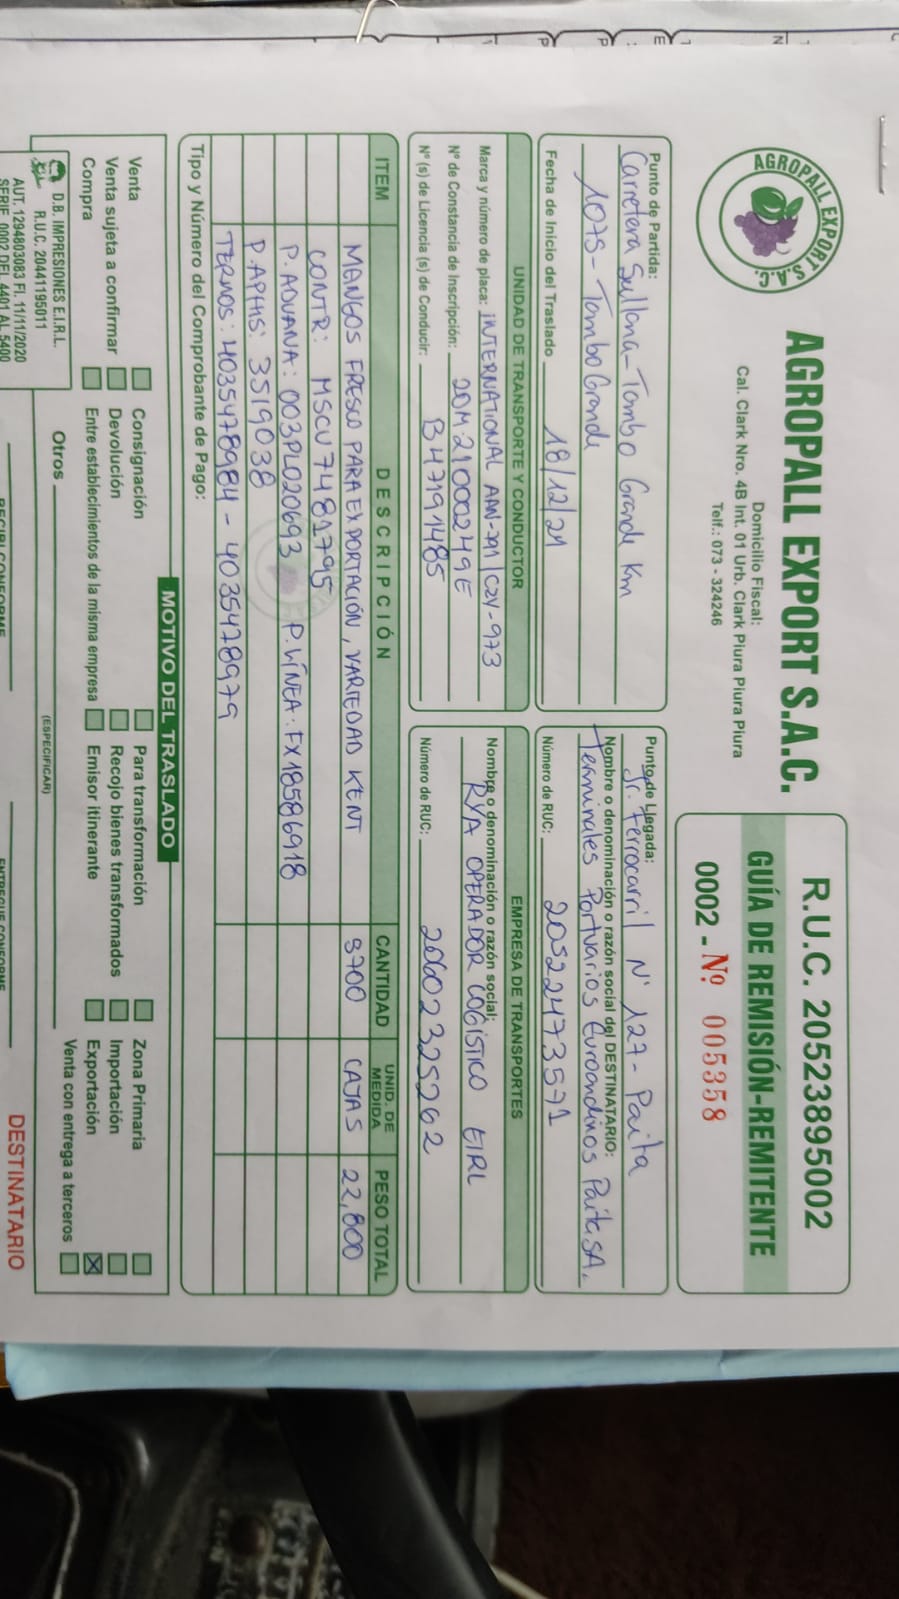 AGROPALL EXPORT S.A.C.
AGROPALL EXPORT S.A.C.
Domicilio Fiscal:
Cal. Clark Nro. 4B Int. 01 Urb. Clark Piura Piura Piura
Telf.: 073 - 324246
R.U.C. 20523895002
GUÍA DE REMISIÓN-REMITENTE
0002 - Nº 005358
Punto de Partida:
Carretera Sullana - Tambo Grande Km
1075 - TamboGrande
Fecha de Inicio del Traslado 18/12/21
Punto de Llegada:
Jr. Ferrocarril N° 127 - Paita
Nombre o denominación o razón social del DESTINATARIO:
Terminales Portuarios Euroandinos Paita SA.
Número de RUC: 20522473571
UNIDAD DE TRANSPORTE Y CONDUCTOR
Marca y número de placa: INTERNATIONAL / C2V-973
Nº de Constancia de Inscripción: 20M21000249E
Nº (s) de Licencia (s) de Conducir: B47191485
EMPRESA DE TRANSPORTES
Nombre o denominación o razón social:
RYA OPERADOR LOGÍSTICO EIRL
Número de RUC: 20602325262
ITEM DESCRIPCIÓN CANTIDAD UNID. DE MEDIDA PESO TOTAL
MANGOS FRESCO PARA EXPORTACIÓN, VARIEDAD KENT CAJAS 22,800
CONTR: MSCU7481795
P. ADUANA: 003PL020693 P. LÍNEA: FX18586918
P. APHIS: 3519038
TERMOS: 4035478984 - 4035478979
Tipo y Número del Comprobante de Pago:
MOTIVO DEL TRASLADO
Venta
Venta sujeta a confirmar
Compra
Consignación
Devolución
Entre establecimientos de la misma empresa
Para transformación
Recojo bienes transformados
Emisor itinerante
Zona Primaria
Importación
Exportación
Venta con entrega a terceros
Otros
(ESPECIFICAR)
D.B. IMPRESIONES E.I.R.L.
R.U.C. 20441195011
AUT. 1294803083 FI. 11/11/2020
SERIE 0002 DEL 4401 AL 5400
RECIBI CONFORME
ENTREGUE CONFORME
DESTINATARIO